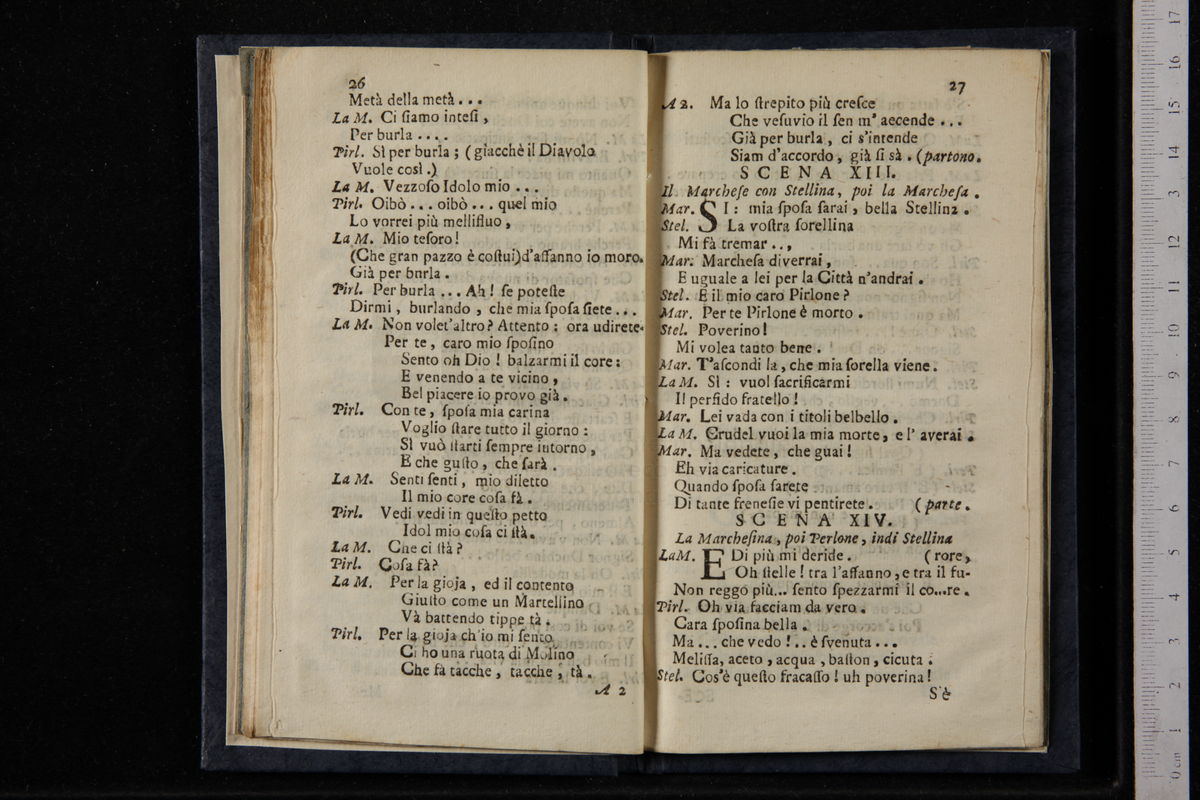 26
Metà della metà . . .
La M. Ci ſiamo inteſi ,
Per burla . . . .
Pirl. Sì per burla ; ( giacchè il Diavolo
Vuole così .)
La M. Vezzoſo Idolo mio . . .
Pirl. Oibò . . . oibò . . . quel mio
Lo vorrei più mellifluo ,
La M. Mio teſoro !
(Che gran pazzo è coſtui)d'affanno io moro.
Già per bnrla .
Pirl. Per burla . . . Ah ! ſe poteſte
Dirmi , burlando , che mia ſpoſa ſiete . . .
La M. Non volet'altro ? Attento : ora udirete.
Per te , caro mio ſpoſino
Sento oh Dio ! balzarmi il core :
E venendo a te vicino ,
Bel piacere io provo già .
Pirl. Con te , ſpoſa mia carina
Voglio ſtare tutto il giorno :
Sì vuò ſtarti ſempre intorno ,
E che guſto , che ſarà .
La M. Senti ſenti , mio diletto
Il mio core coſa fà .
Pirl. Vedi vedi in queſto petto
Idol mio coſa ci ſtà .
La M. Che ci ſtà ?
Pirl. Coſa fà?
La M. Per la gioja , ed il contento
Giuſto come un Martellino
Và battendo tippe tà .
Pirl. Per la gioja ch'io mi ſento
Ci ho una ruota di Molino
Che fà tacche , tacche , tà .
A 2
27
A 2. Ma lo ſtrepito più creſce
Che veſuvio il ſen m' accende . . .
Già per burla , ci s'intende
Siam d'accordo , già ſi sà . (partono.
SCENA XIII.
Il Marcheſe con Stellina, poi la Marcheſa .
Mar. SI : mia ſpoſa ſarai , bella Stellina .
Stel. La voſtra ſorellina
Mi fà tremar . . ,
Mar. Marcheſa diverrai ,
E uguale a lei per la Città n'andrai .
Stel. E il mio caro Pirlone ?
Mar. Per te Pirlone è morto .
Stel. Poverino !
Mi volea tanto bene .
Mar. T'aſcondi là , che mia ſorella viene .
La M. Sì : vuol ſacrificarmi
Il perfido fratello !
Mar. Lei vada con i titoli belbello .
La M. Crudel vuoi la mia morte , e l' averai .
Mar. Ma vedete , che guai !
Eh via caricature .
Quando ſpoſa ſarete
Di tante freneſie vi pentirete . (parte .
SCENA XIV.
La Marcheſina , poi Perlone , indi Stellina
La M. EDi più mi deride . ( rore ,
Oh ſtelle ! tra l'affanno , e tra il fu-
Non reggo più... ſento ſpezzarmi il co...re .
Pirl. Oh via facciam da vero .
Cara ſpoſina bella .
Ma . . . che vedo ! . . è ſvenuta . . .
Meliſſa, aceto , acqua , baſton , cicuta .
Stel. Cos'è queſto fracaſſo ! uh poverina !
S'è